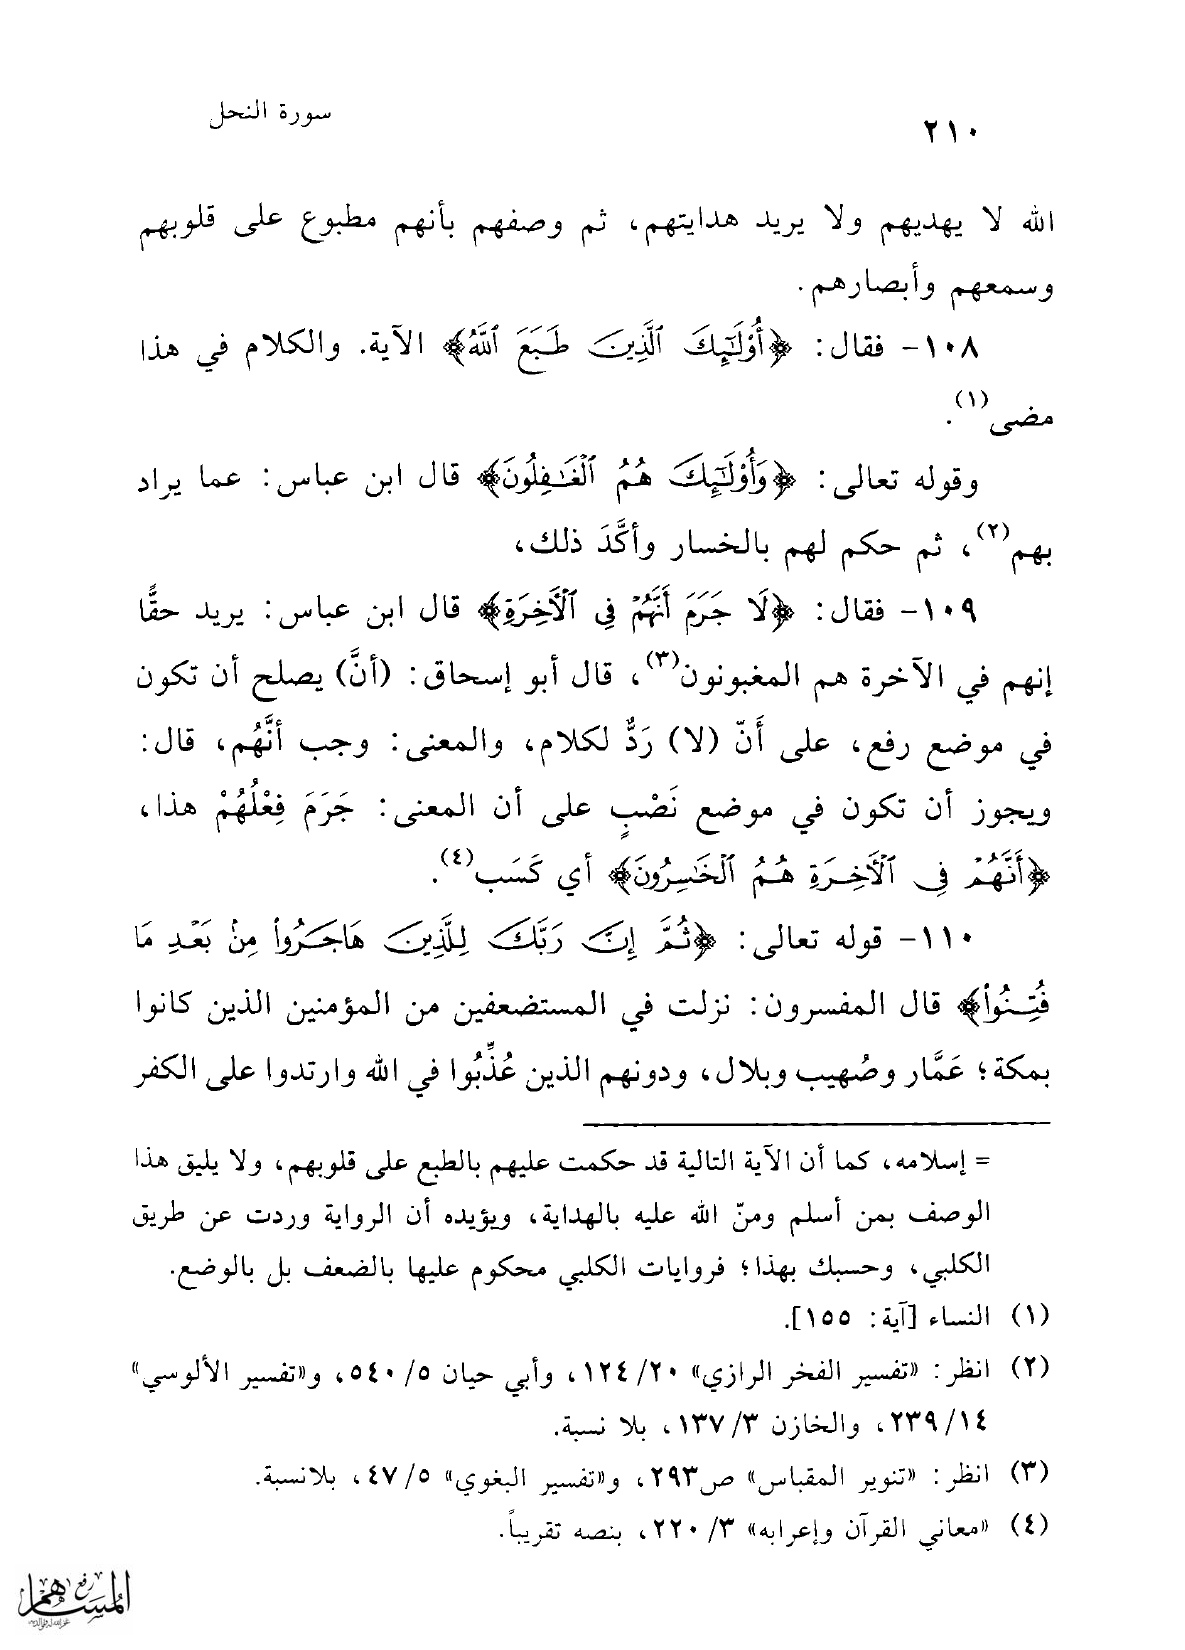 سورة النحل
٢١٠
الله لا يهديهم ولا يريد هدايتهم، ثم وصفهم بأنهم مطبوع على قلوبهم
وسمعهم وأبصارهم.
١٠٨- فقال: ﴿أُوْلَٰٓئِكَ ٱلَّذِينَ طَبَعَ ٱللَّهُ﴾ الآية. والكلام في هذا
مضى(١).
وقوله تعالى: ﴿وَأُوْلَٰٓئِكَ هُمُ ٱلْغَٰفِلُونَ﴾ قال ابن عباس: عما يراد
بهم(٢)، ثم حكم لهم بالخسار وأكَّدَ ذلك،
١٠٩- فقال: ﴿لَا جَرَمَ أَنَّهُمْ فِى ٱلْأَخِرَةِ﴾ قال ابن عباس: يريد حقًّا
إنهم في الآخرة هم المغبونون(٣)، قال أبو إسحاق: (أنَّ) يصلح أن تكون
في موضع رفع، على أَنّ (لا) رَدٌّ لكلام، والمعنى: وجب أنَّهُم، قال:
ويجوز أن تكون في موضع نَصْبٍ على أن المعنى: جَرَمَ فِعْلُهُمْ هذا،
﴿أَنَّهُمْ فِى ٱلْأَخِرَةِ هُمُ ٱلْخَٰسِرُونَ﴾ أي كَسَب(٤).
١١٠- قوله تعالى: ﴿ثُمَّ إِنَّ رَبَّكَ لِلَّذِينَ هَاجَرُواْ مِنۢ بَعْدِ مَا
فُتِنُواْ﴾ قال المفسرون: نزلت في المستضعفين من المؤمنين الذين كانوا
بمكة؛ عَمَّار وصُهيب وبلال، ودونهم الذين عُذِّبُوا في الله وارتدوا على الكفر
= إسلامه، كما أن الآية التالية قد حكمت عليهم بالطبع على قلوبهم، ولا يليق هذا
الوصف بمن أسلم ومنّ الله عليه بالهداية، ويؤيده أن الرواية وردت عن طريق
الكلبي، وحسبك بهذا؛ فروايات الكلبي محكوم عليها بالضعف بل بالوضع.
(١) النساء [آية: ١٥٥].
(٢) انظر: «تفسير الفخر الرازي» ١٢٤/٢٠، وأبي حيان ٥٤٠/٥، و«تفسير الألوسي»
٢٣٩/١٤، والخازن ١٣٧/٣، بلا نسبة.
(٣) انظر: «تنوير المقباس» ص٢٩٣، و«تفسير البغوي» ٤٧/٥، بلانسبة.
(٤) «معاني القرآن وإعرابه» ٢٢٠/٣، بنصه تقريباً.